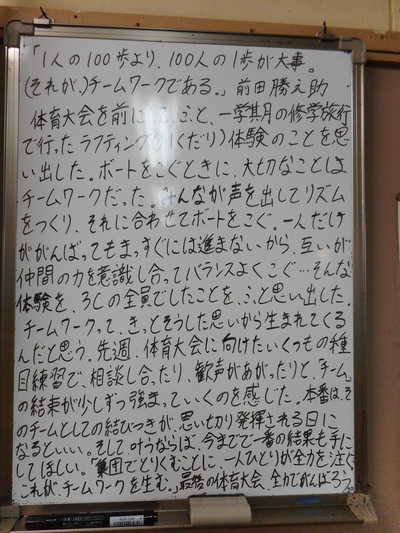 「1人の100歩より、100人の1歩が大事。
(それが、)チームワークである。」前田勝之助
体育大会を前に、ふと、一学期の修学旅行
で行ったラフティング(川くだり)体験のことを思
い出した。ボートをこぐときに、大切なことは
チームワークだった。みんなが声を出してリズム
をつくり、それに合わせてボートをこぐ。一人だけ
ががんばってもまっすぐには進まないから、互いが
仲間の力を意識し合ってバランスよくこぐ…そんな
体験を、3Cの全員でしたことを、ふと思い出した。
チームワークって、きっとそうした思いから生まれてくる
んだと思う。先週、体育大会に向けたいくつもの種
目練習で、相談し合ったり、歓声があがったりと、「チーム」
の結束が少しずつ強まっていくのを感じた。本番は、そ
のチームとしての結びつきが、思い切り発揮される日に
なるといい。そして叶うならば、今までで一番の結果も手に
してほしい。「集団でとりくむことに、一人ひとりが全力を注ぐ。
これが、チームワークを生む。」最後の体育大会、全力でがんばろう。